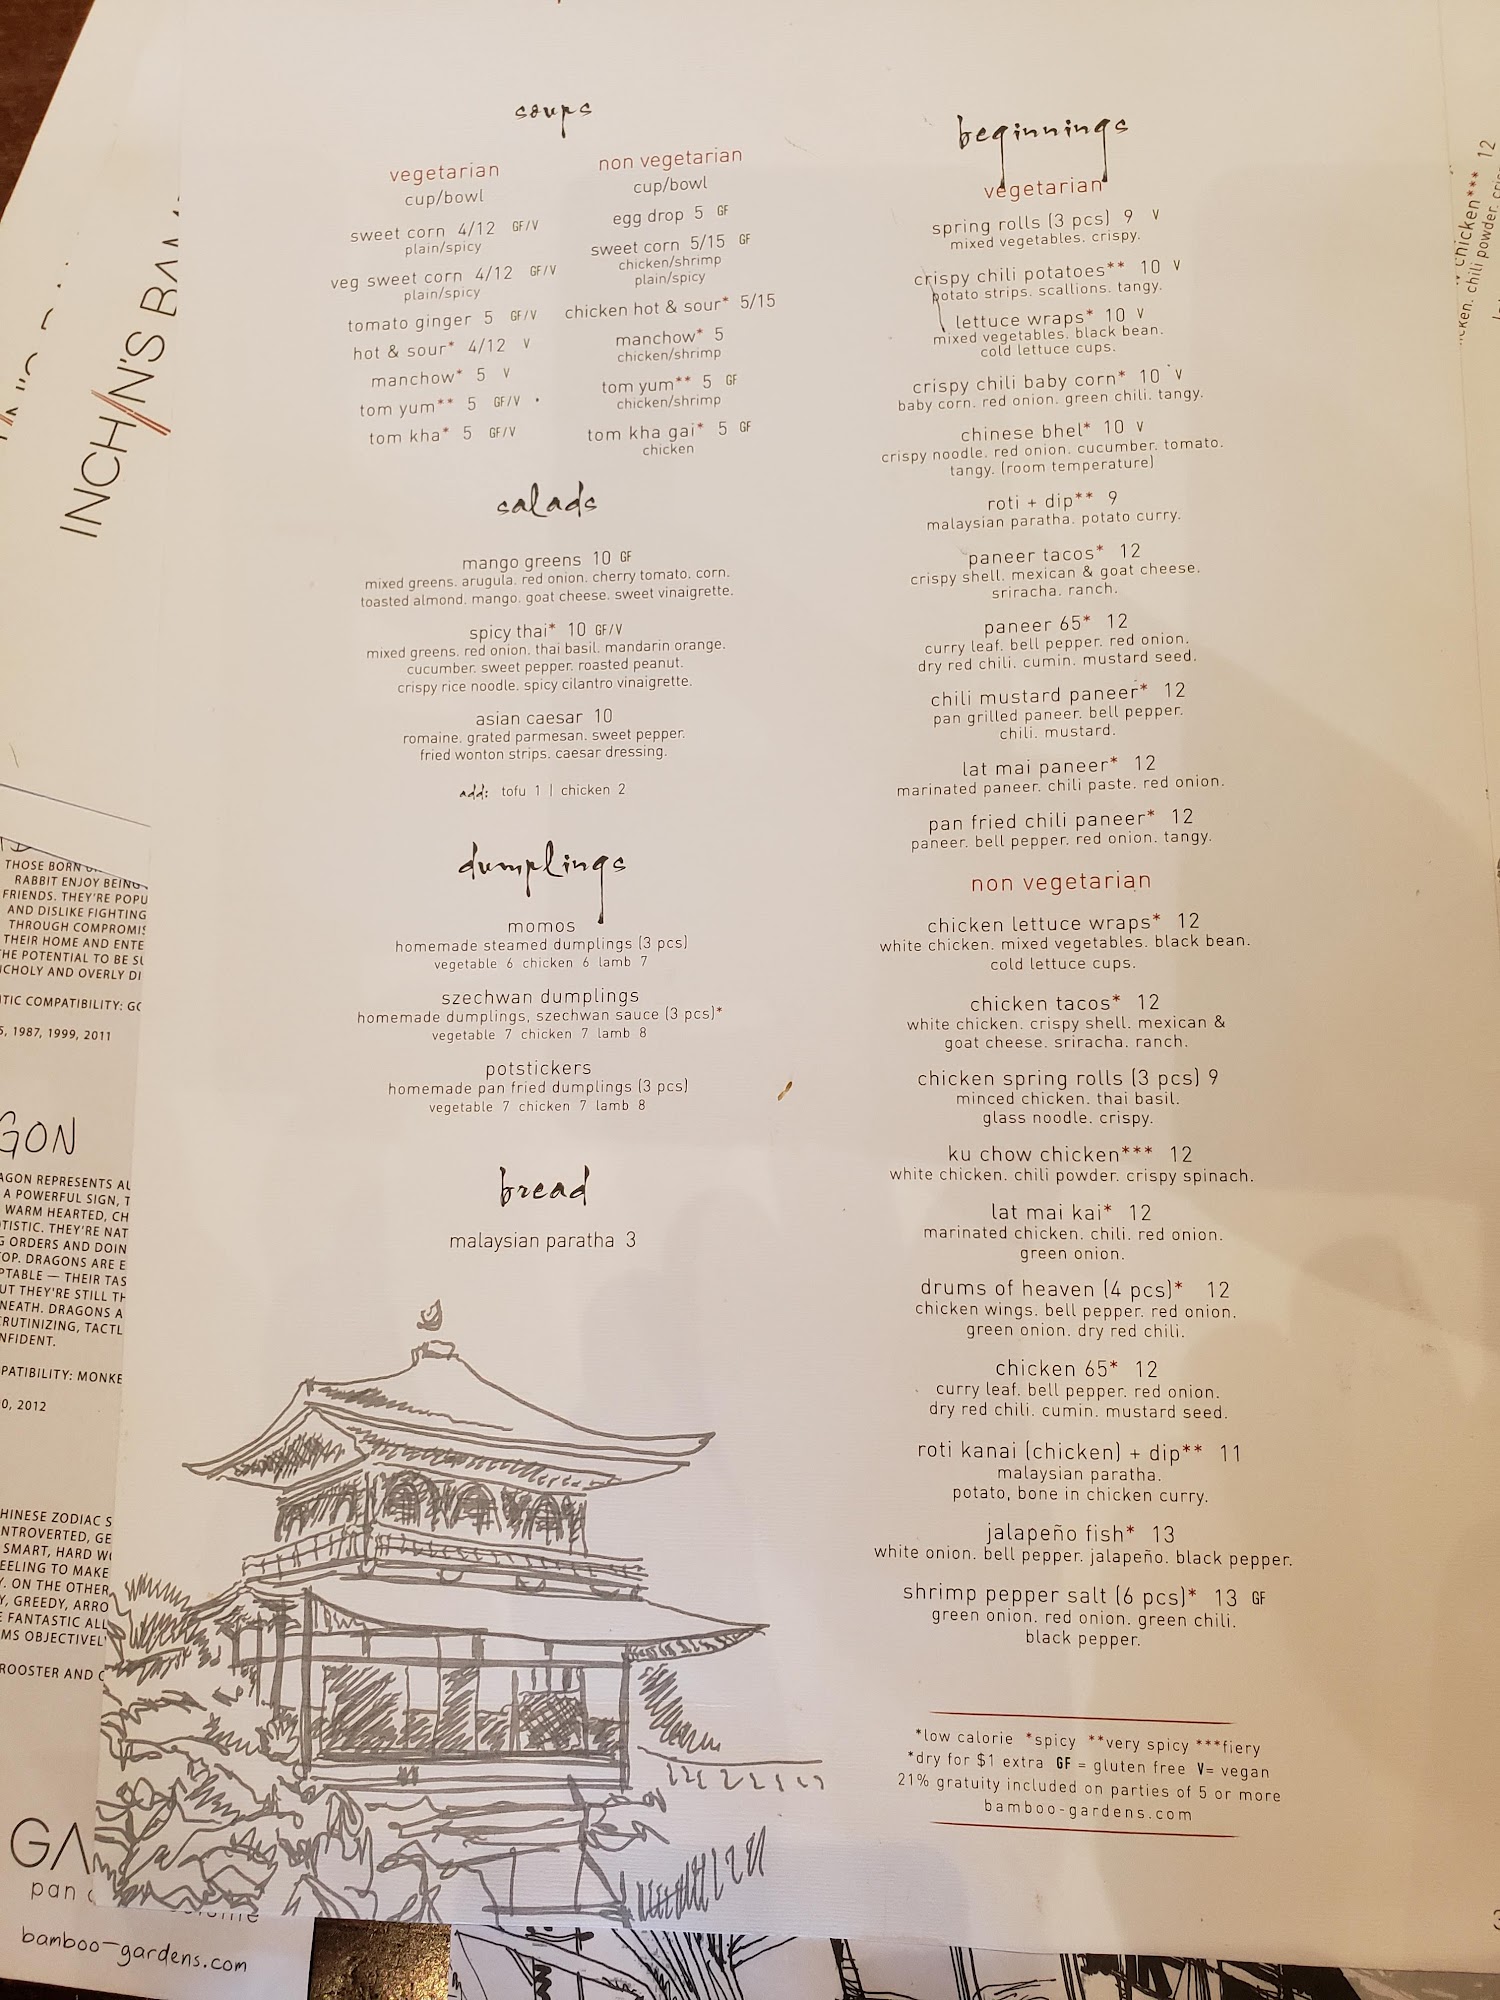 soups
vegetarian
cup/bowl
sweet corn 4/12 GF/V
plain/spicy
veg sweet corn 4/12 GF/V
plain/spicy
tomato ginger 5 GF/V
hot & sour* 4/12 V
manchow* 5 V
tom yum** 5 GF/V
tom kha* 5 GF/V
non vegetarian
cup/bowl
egg drop 5 GF
sweet corn 5/15 GF
chicken/shrimp
plain/spicy
chicken hot & sour* 5/15
manchow* 5
chicken/shrimp
tom yum** 5 GF
chicken/shrimp
tom kha gai* 5 GF
chicken
salads
mango greens 10 GF
mixed greens. arugula. red onion. cherry tomato. corn.
toasted almond. mango. goat cheese. sweet vinaigrette.
spicy thai* 10 GF/V
mixed greens. red onion. thai basil. mandarin orange.
cucumber. sweet pepper. roasted peanut.
crispy rice noodle. spicy cilantro vinaigrette.
asian caesar 10
romaine. grated parmesan. sweet pepper.
fried wonton strips. caesar dressing.
add: tofu 1 | chicken 2
dumplings
momos
homemade steamed dumplings (3 pcs)
vegetable 6 chicken 6 lamb 7
szechwan dumplings
homemade dumplings, szechwan sauce (3 pcs)*
vegetable 7 chicken 7 lamb 8
potstickers
homemade pan fried dumplings (3 pcs)
vegetable 7 chicken 7 lamb 8
bread
malaysian paratha 3
beginnings
vegetarian
spring rolls (3 pcs) 9 V
mixed vegetables. crispy.
crispy chili potatoes** 10 V
potato strips. scallions. tangy.
lettuce wraps* 10 V
mixed vegetables. black bean.
cold lettuce cups.
crispy chili baby corn* 10 V
baby corn. red onion. green chili. tangy.
chinese bhel* 10 V
crispy noodle. red onion. cucumber. tomato.
tangy. (room temperature)
roti + dip** 9
malaysian paratha. potato curry.
paneer tacos* 12
crispy shell. mexican & goat cheese.
sriracha. ranch.
paneer 65* 12
curry leaf. bell pepper. red onion.
dry red chili. cumin. mustard seed.
chili mustard paneer* 12
pan grilled paneer. bell pepper.
chili. mustard.
lat mai paneer* 12
marinated paneer. chili paste. red onion.
pan fried chili paneer* 12
paneer. bell pepper. red onion. tangy.
non vegetarian
chicken lettuce wraps* 12
white chicken. mixed vegetables. black bean.
cold lettuce cups.
chicken tacos* 12
white chicken. crispy shell. mexican &
goat cheese. sriracha. ranch.
chicken spring rolls (3 pcs) 9
minced chicken. thai basil.
glass noodle. crispy.
ku chow chicken*** 12
white chicken. chili powder. crispy spinach.
lat mai kai* 12
marinated chicken. chili. red onion.
green onion.
drums of heaven (4 pcs)* 12
chicken wings. bell pepper. red onion.
green onion. dry red chili.
chicken 65* 12
curry leaf. bell pepper. red onion.
dry red chili. cumin. mustard seed.
roti kanai (chicken) + dip** 11
malaysian paratha.
potato, bone in chicken curry.
jalapeño fish* 13
white onion. bell pepper. jalapeño. black pepper.
shrimp pepper salt (6 pcs)* 13 GF
green onion. red onion. green chili.
black pepper.
*low calorie *spicy **very spicy ***fiery
*dry for $1 extra GF = gluten free V= vegan
21% gratuity included on parties of 5 or more
bamboo-gardens.com
INCHIN'S
THOSE BORN
RABBIT ENJOY BEING
FRIENDS. THEY'RE
AND DISLIKE FIGHTING
THROUGH
THEIR HOME AND
THE POTENTIAL TO BE
AND OVERLY
COMPATIBILITY:
1987, 1999, 2011
REPRESENTS
A POWERFUL SIGN,
WARM HEARTED,
THEY'RE
ORDERS AND
DRAGONS ARE
— THEIR
THEY'RE STILL
DRAGONS
COMPATIBILITY:
2012
CHINESE ZODIAC
SMART, HARD
TO MAKE
ON THE OTHER
GREEDY,
FANTASTIC
ROOSTER AND
pan
bamboo-gardens.com
chicken*** 12
chili powder.